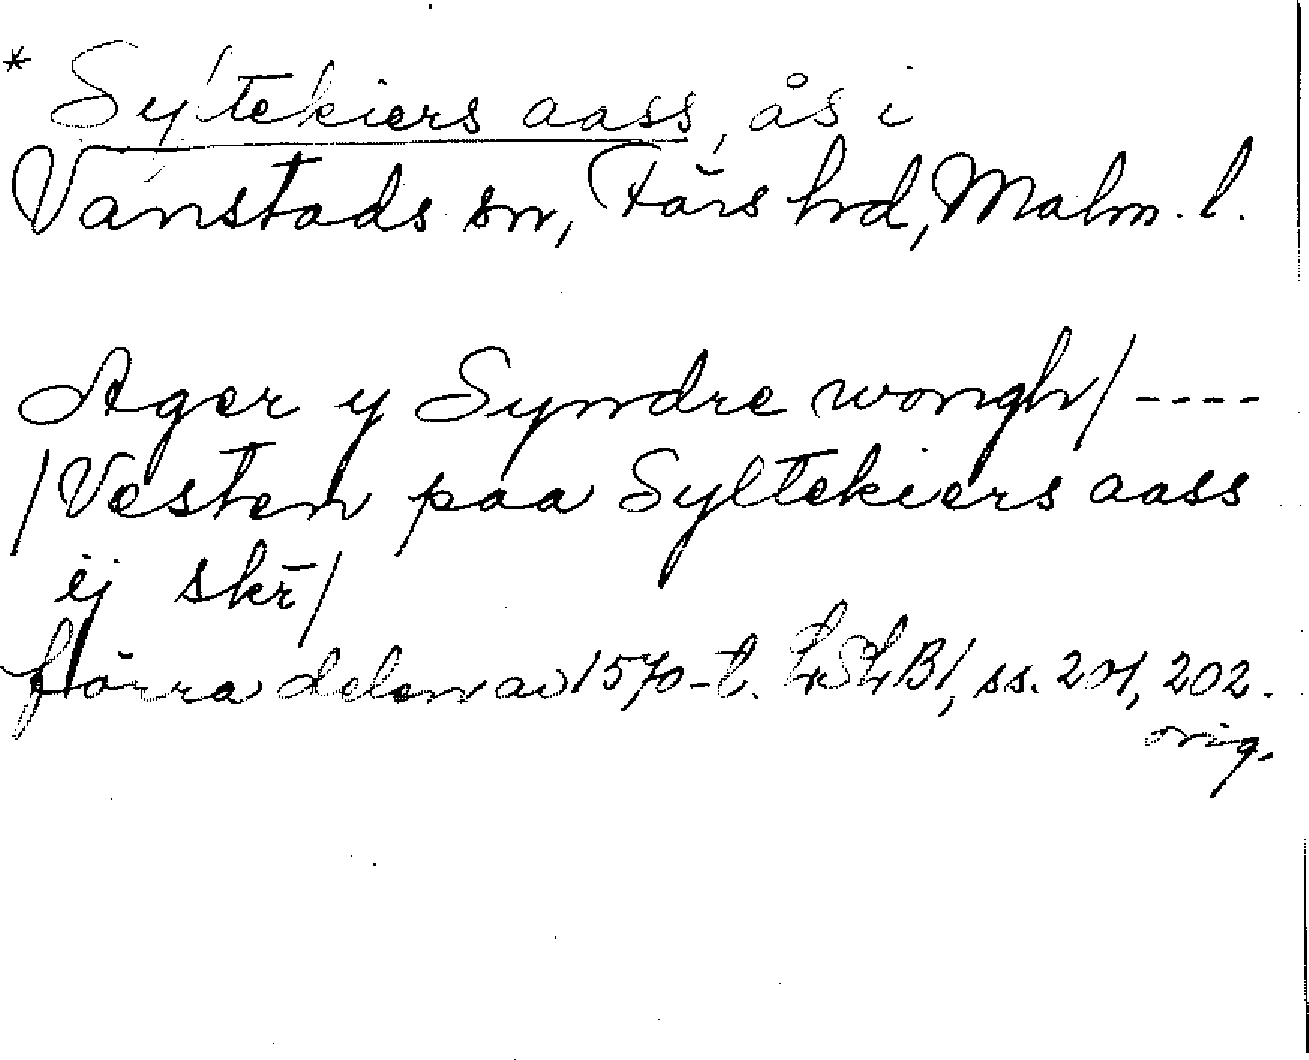 * Syltekiers aass, ås i
Vanstads sn, Färs hrd, Malm. l.
Ager y Syndre wongh/ ----
/Vesten paa Syltekiers aass
ej skr/
förra delen av 1570-t. LSLB1, ss. 201, 202.
orig.